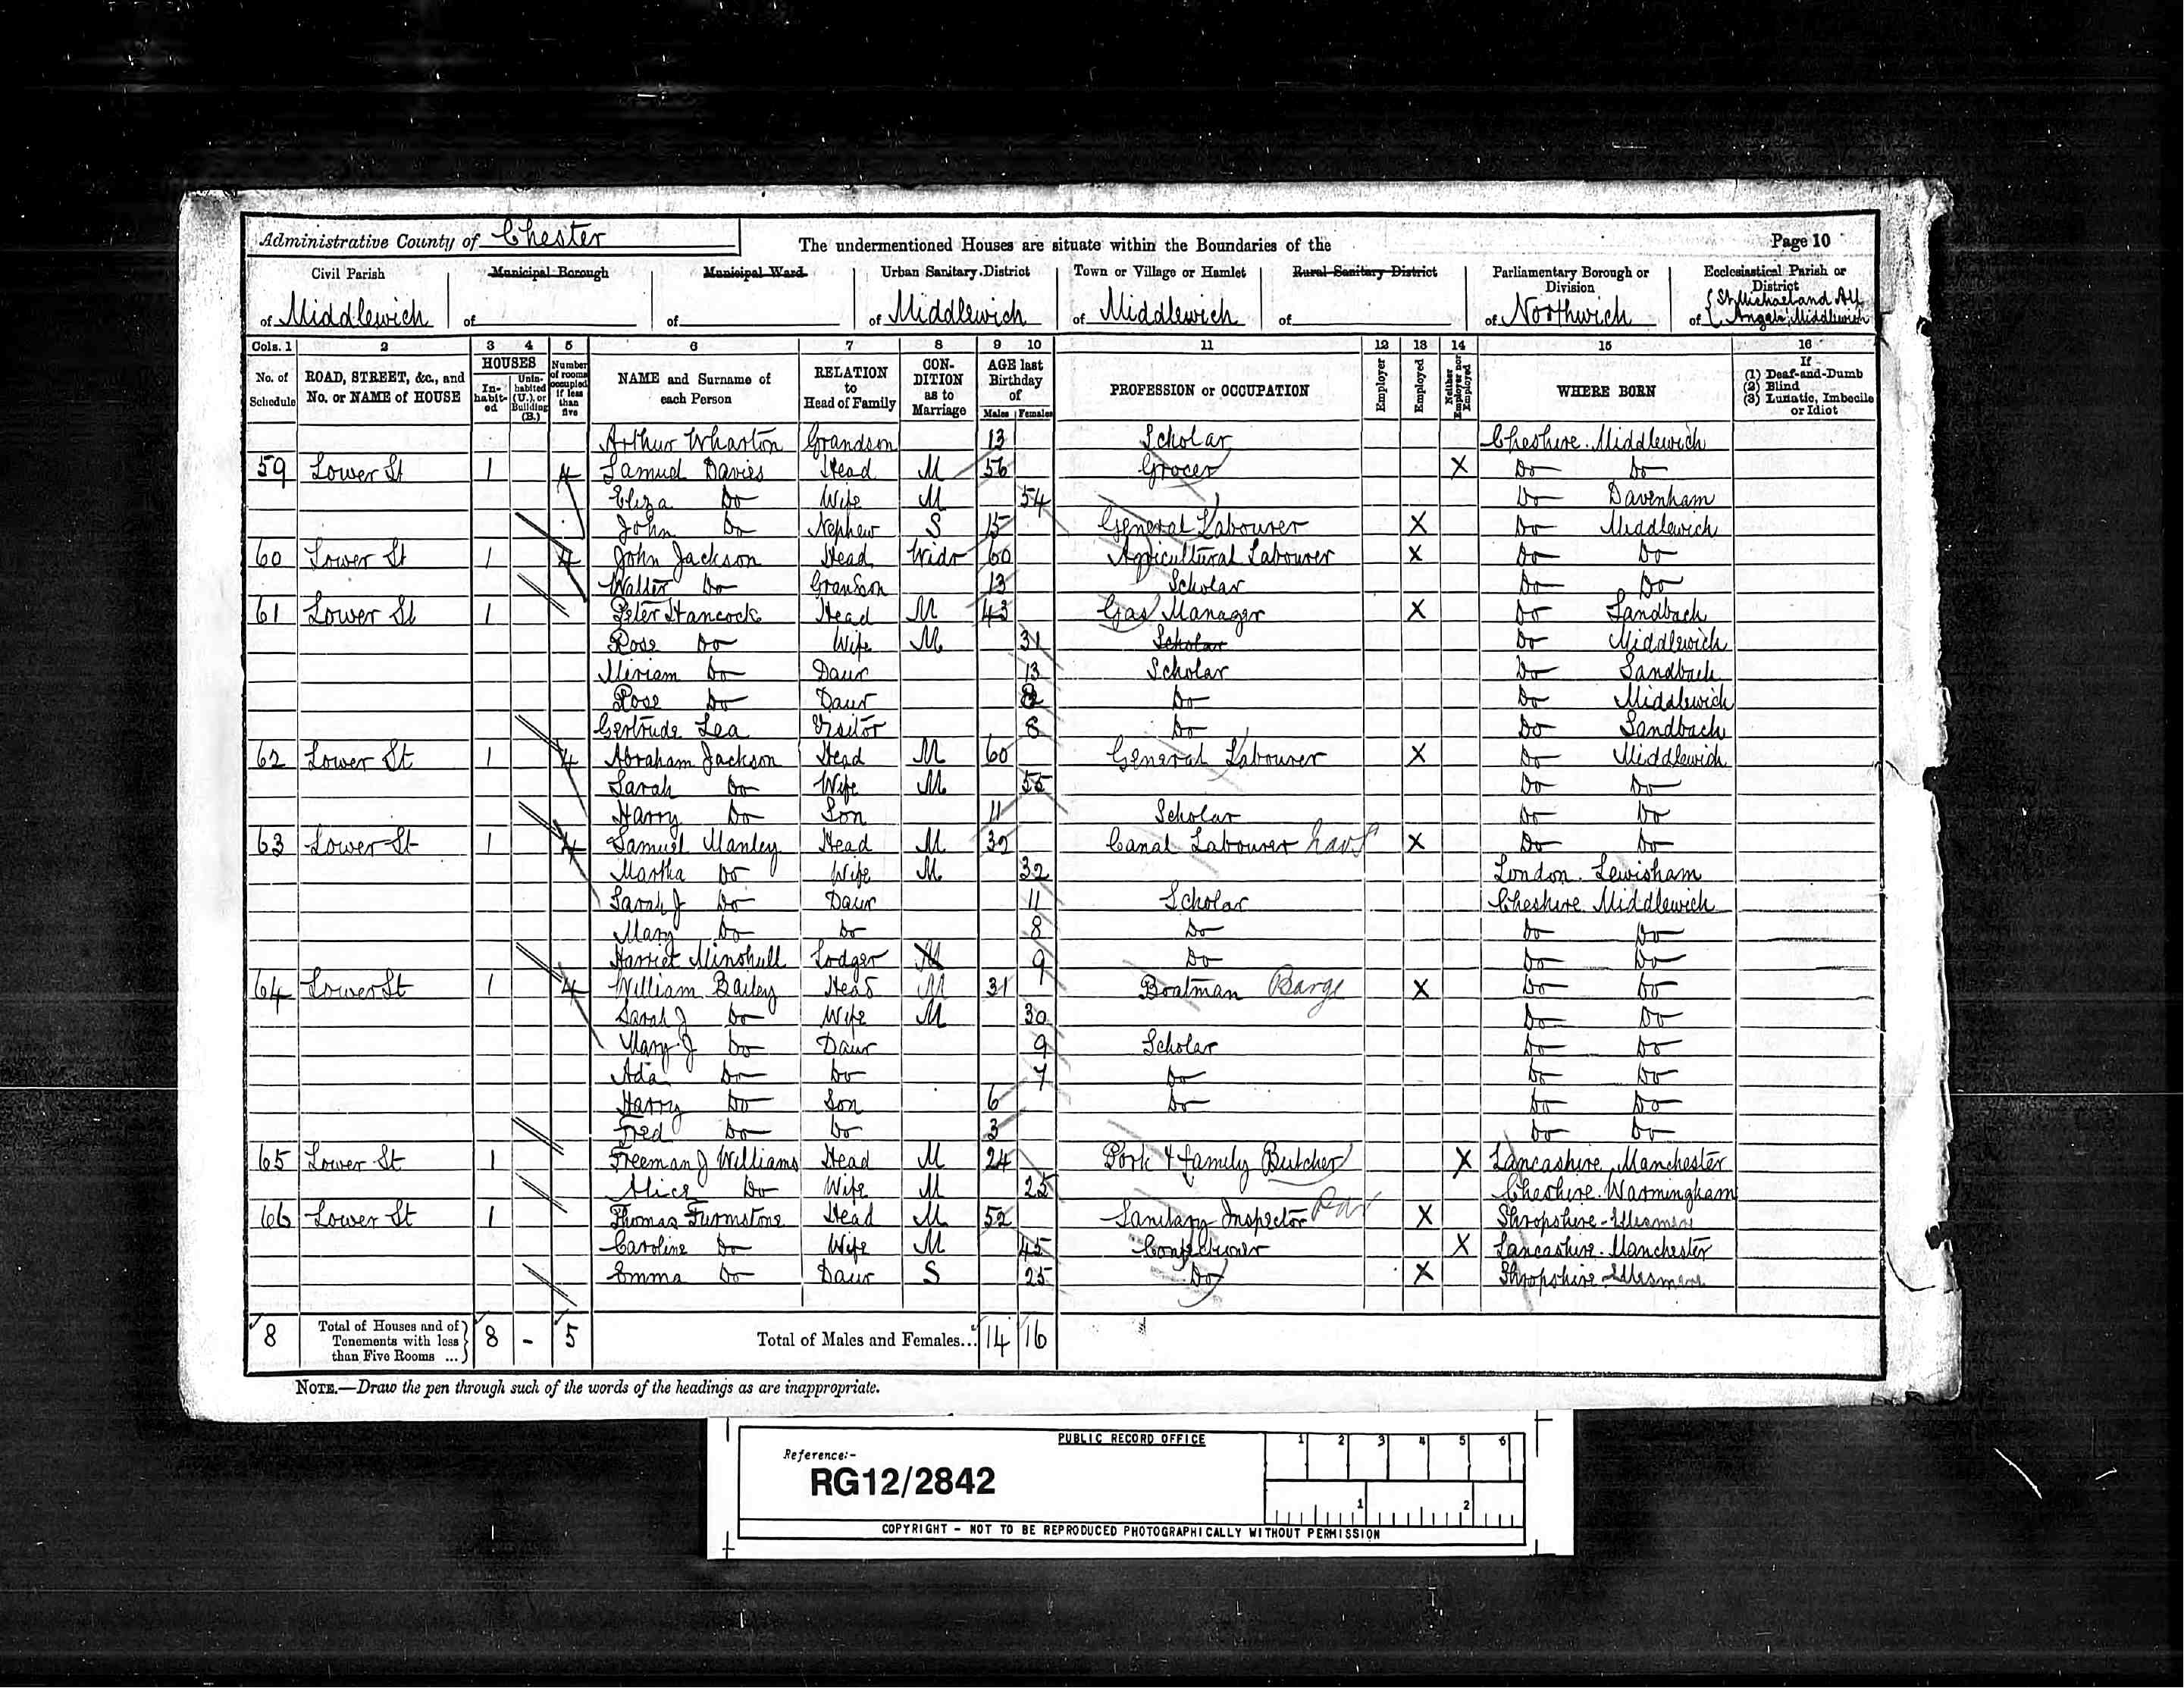 Administrative County of Chester
The undermentioned Houses are situate within the Boundaries of the
Page 10
Civil Parish of Middlewich
Municipal Borough of
Municipal Ward of
Urban Sanitary District of Middlewich
Town or Village or Hamlet of Middlewich
Rural Sanitary District of
Parliamentary Borough or Division of Northwich
Ecclesiastical Parish or District of St Michael and All Angels Middlewich
Cols. 1 2 3 4 5 6 7 8 9 10 11 12 13 14 15 16
No. of Schedule
ROAD, STREET, &c., and No. or NAME of HOUSE
HOUSES
In-habit-ed
Unin-habited (U.), or Building (B.)
Number of rooms occupied if less than five
NAME and Surname of each Person
RELATION to Head of Family
CON-DITION as to Marriage
AGE last Birthday of
Males Females
PROFESSION or OCCUPATION
Employer
Employed
Neither Employer nor Employed
WHERE BORN
If
(1) Deaf-and-Dumb
(2) Blind
(3) Lunatic, Imbecile or Idiot
Arthur Wharton Grandson 13 Scholar Cheshire Middlewich
59 Lower St 1 4 Samuel Davies Head M 56 Grocer X Do Do
Eliza Do Wife M 54 Do Davenham
John Do Nephew S 15 General Labourer X Do Middlewich
60 Lower St 1 4 John Jackson Head Widr 60 Agricultural Labourer X Do Do
Walter Do Granson 13 Scholar Do Do
61 Lower St 1 Peter Hancock Head M 43 Gas Manager X Do Sandbach
Rose Do Wife M 31 Scholar Do Middlewich
Miriam Do Daur 13 Scholar Do Sandbach
Rose Do Daur Do Do Middlewich
Gertrude Lea Visitor 8 Do Do Sandbach
62 Lower St 1 4 Abraham Jackson Head M 60 General Labourer X Do Middlewich
Sarah Do Wife M 55 Do Do
Harry Do Son 11 Scholar Do Do
63 Lower St 1 4 Samuel Manley Head M 32 Canal Labourer X Do Do
Martha Do Wife M 32 London Lewisham
Sarah J Do Daur 11 Scholar Cheshire Middlewich
Mary Do Do 8 Do Do Do
Harriet Minshull Lodger M 9 Do Do Do
64 Lower St 1 4 William Bailey Head M 31 Boatman Barge X Do Do
Sarah J Do Wife M 30 Do Do
Mary J Do Daur 9 Scholar Do Do
Ada Do Do 7 Do Do Do
Harry Do Son 6 Do Do Do
Fred Do Do 3 Do Do
65 Lower St 1 Freeman J Williams Head M 24 Pork & family Butcher X Lancashire Manchester
Alice Do Wife M 25 Cheshire Warmingham
66 Lower St 1 Thomas Furmstone Head M 52 Sanitary Inspector X Shropshire - Ellesmere
Caroline Do Wife M 45 Confectioner X Lancashire Manchester
Emma Do Daur S 25 Do X Shropshire Ellesmere
8 Total of Houses and of Tenements with less than Five Rooms ... 8 - 5 Total of Males and Females... 14 16
NOTE.—Draw the pen through such of the words of the headings as are inappropriate.
PUBLIC RECORD OFFICE
1 2 3 4 5 6
Reference:-
RG12/2842
1 2
COPYRIGHT - NOT TO BE REPRODUCED PHOTOGRAPHICALLY WITHOUT PERMISSION